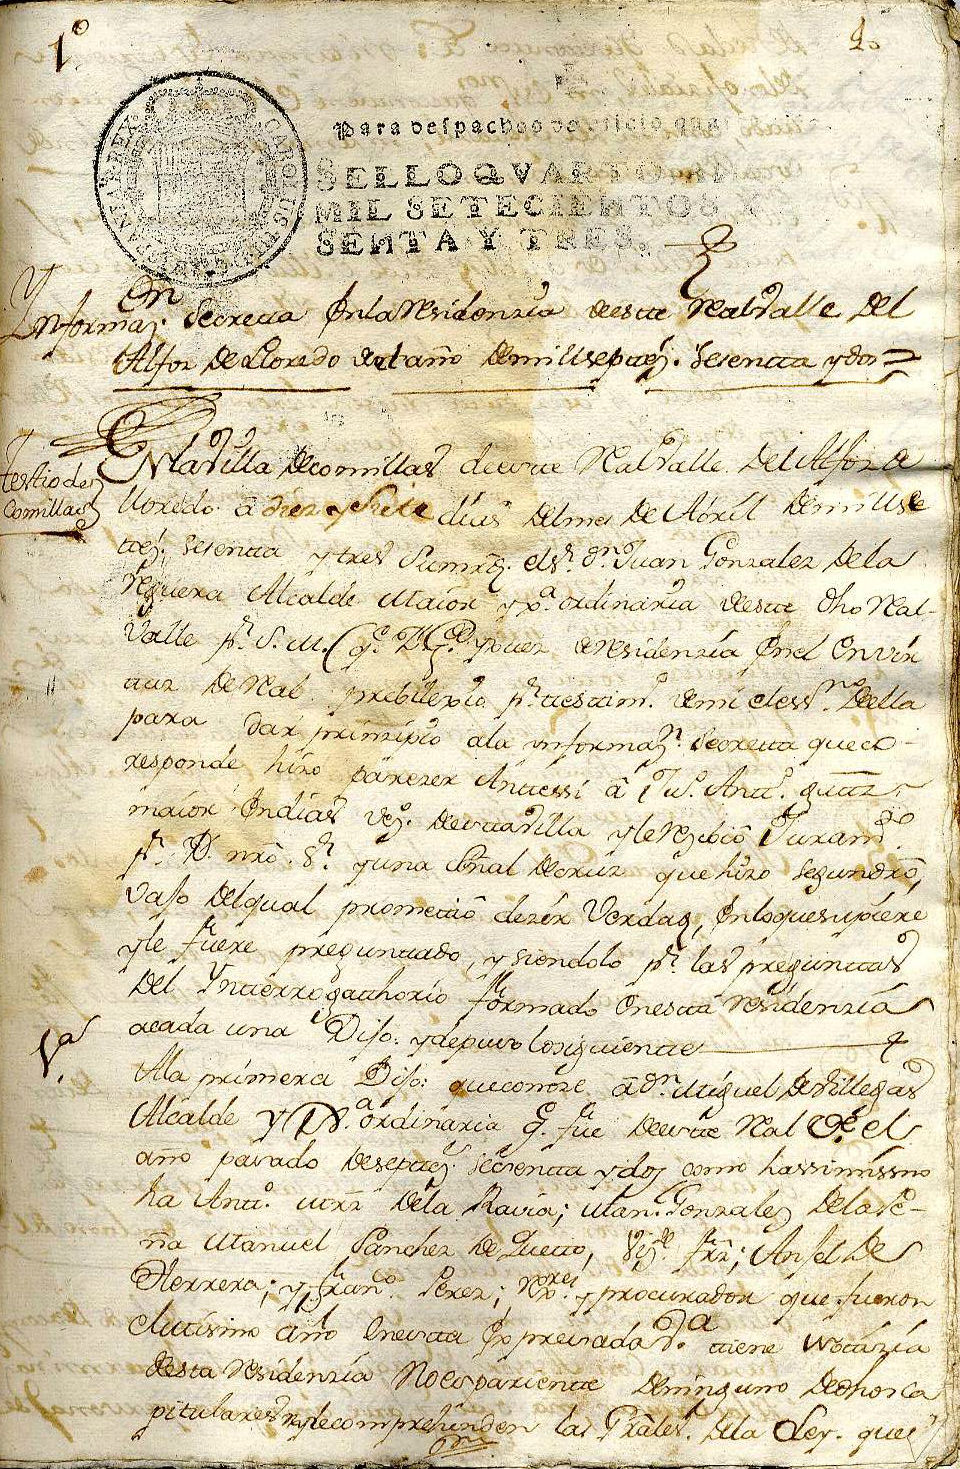 1º
1º
CAROLUS III D G HISPANIAR REX
Para despachos de oficio qua
SELLO QVARTO
MIL SETECIENTOS Y
SENTA Y TRES.
Ynformazon. Secretta En la Residenzia desette Real Valle Del
Alfoz de Lloredo del año de mill septtez. Sesentta y dos =
Testio de
Comillas
En la Villa de comillas deestte Real Valle Del Alfoz de
lloredo a diez y siete dias del mes de Abril de mill se
ttez. sesentta y tres Su mrd. el Sr. Dn. Juan Gonzalez de la
reguera Alcalde Maior y Jª ordinaria deestte dho Real
Valle pr. S. M. (q. D. ge.) y Juez de residenzia En el
de Real previlexio pr. testtim. de mi el essno. della
para dar prinzipio a la ynformazn. Secretta que co-
responde hizo parezer Antte ssi a Juº. Antº. guttz.
maior Yndias vezº. deestta Villa y le rezivio Juramtº.
pr. D. nro. Sr. y una señal de cruz que hizo segun dro,
vajo del qual promettio dezir Verdad, En lo que supiere
y le fuere preguntado, y siendolo pr. las preguntas
Del Ynterrogathorio formado en estta residenzia
acada una Dijo: y depuso lo siguiente
1ª
A la primera Dijo: que conoze a Dn. Miguel de Villegas
Alcalde y Jª. ordinaria q. fue deestte Real Ve. el
año pasado de septtez. sesentta y dos como hassimissmo
ha Antº. de la Ravia; Man. Gonzalez de la Pe-
ña Manuel Sanchez de Quetto, frz; Anjel De
Herrera; y Franº. Perez; Rexres. y procurador que fueron
el mismo año En estta Expresada Vª. ttiene nottizia
desta residenzia No es pariente de ninguno de dhos ca
pitulares ni le comprehenden las Grales. de la Ley. que